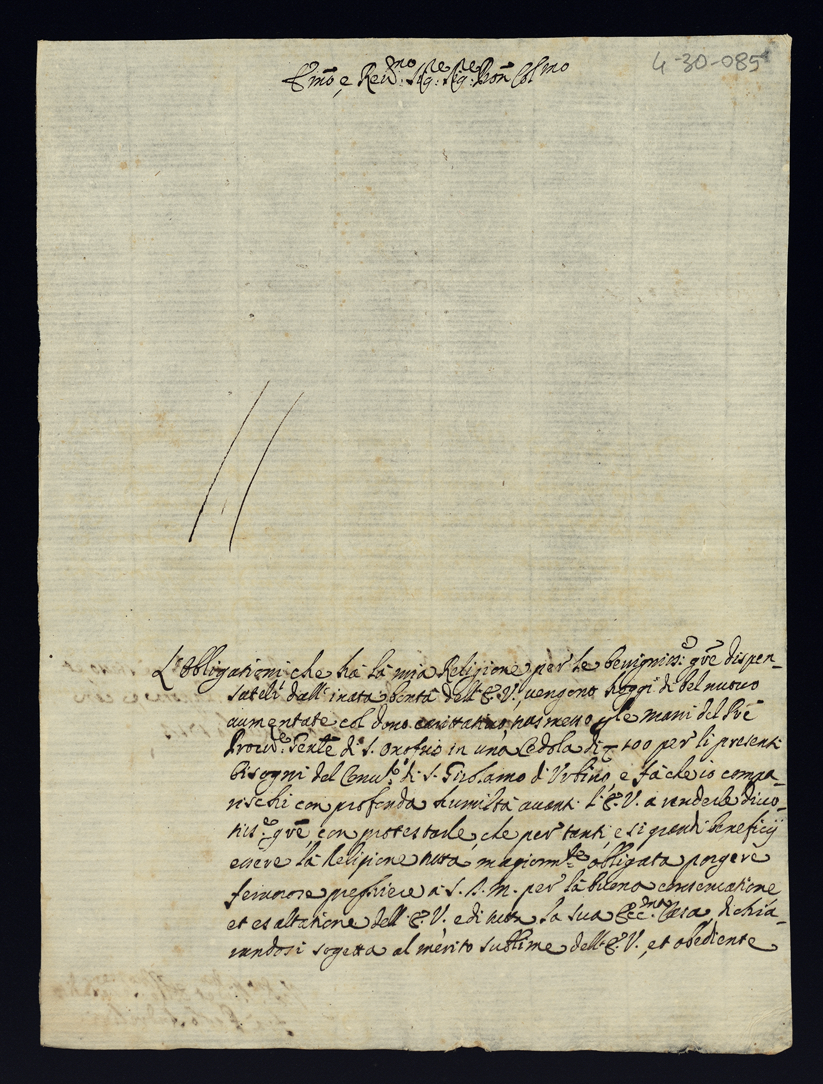 4-30-085
Em̃o, e Reu:ᵐᵒ Sigʳᵉ: Sigʳᵉ: P̃ron Colᵐᵒ
L'Obligationi che hà la mia Religione per le benigniss:ᵉ gr̃e dispen-
sateli dall'inata bontà dell'E. V., uengono hoggi di bel nuouo
aumentate col dono caritatiuo, trasmesso p̱ le mani del Pr̃e
Procu:ʳᵉ Gen̄le di S. Onofrio in una Cedola di 100 per li presenti
bisogni del Conu:ᵗᵒ di S. Girolamo di Vrbino, e fà che io compa-
rischi con profonda humiltà auanti l'E. V. a renderle diuo-
tis:ᵉ gr̃e, con protestarle, che per tanti, e si grandi beneficij
essere la Religione tutta magiorm:ᵗᵉ obligata porgere
feruorose preghiere a S. D. M. per la buona conseruatione,
et esaltatione dell'E. V. e di tutta la sua Ecc:ᵐᵃ Casa, dichia-
randosi sogetta al merito sublime dell'E. V., et obediente